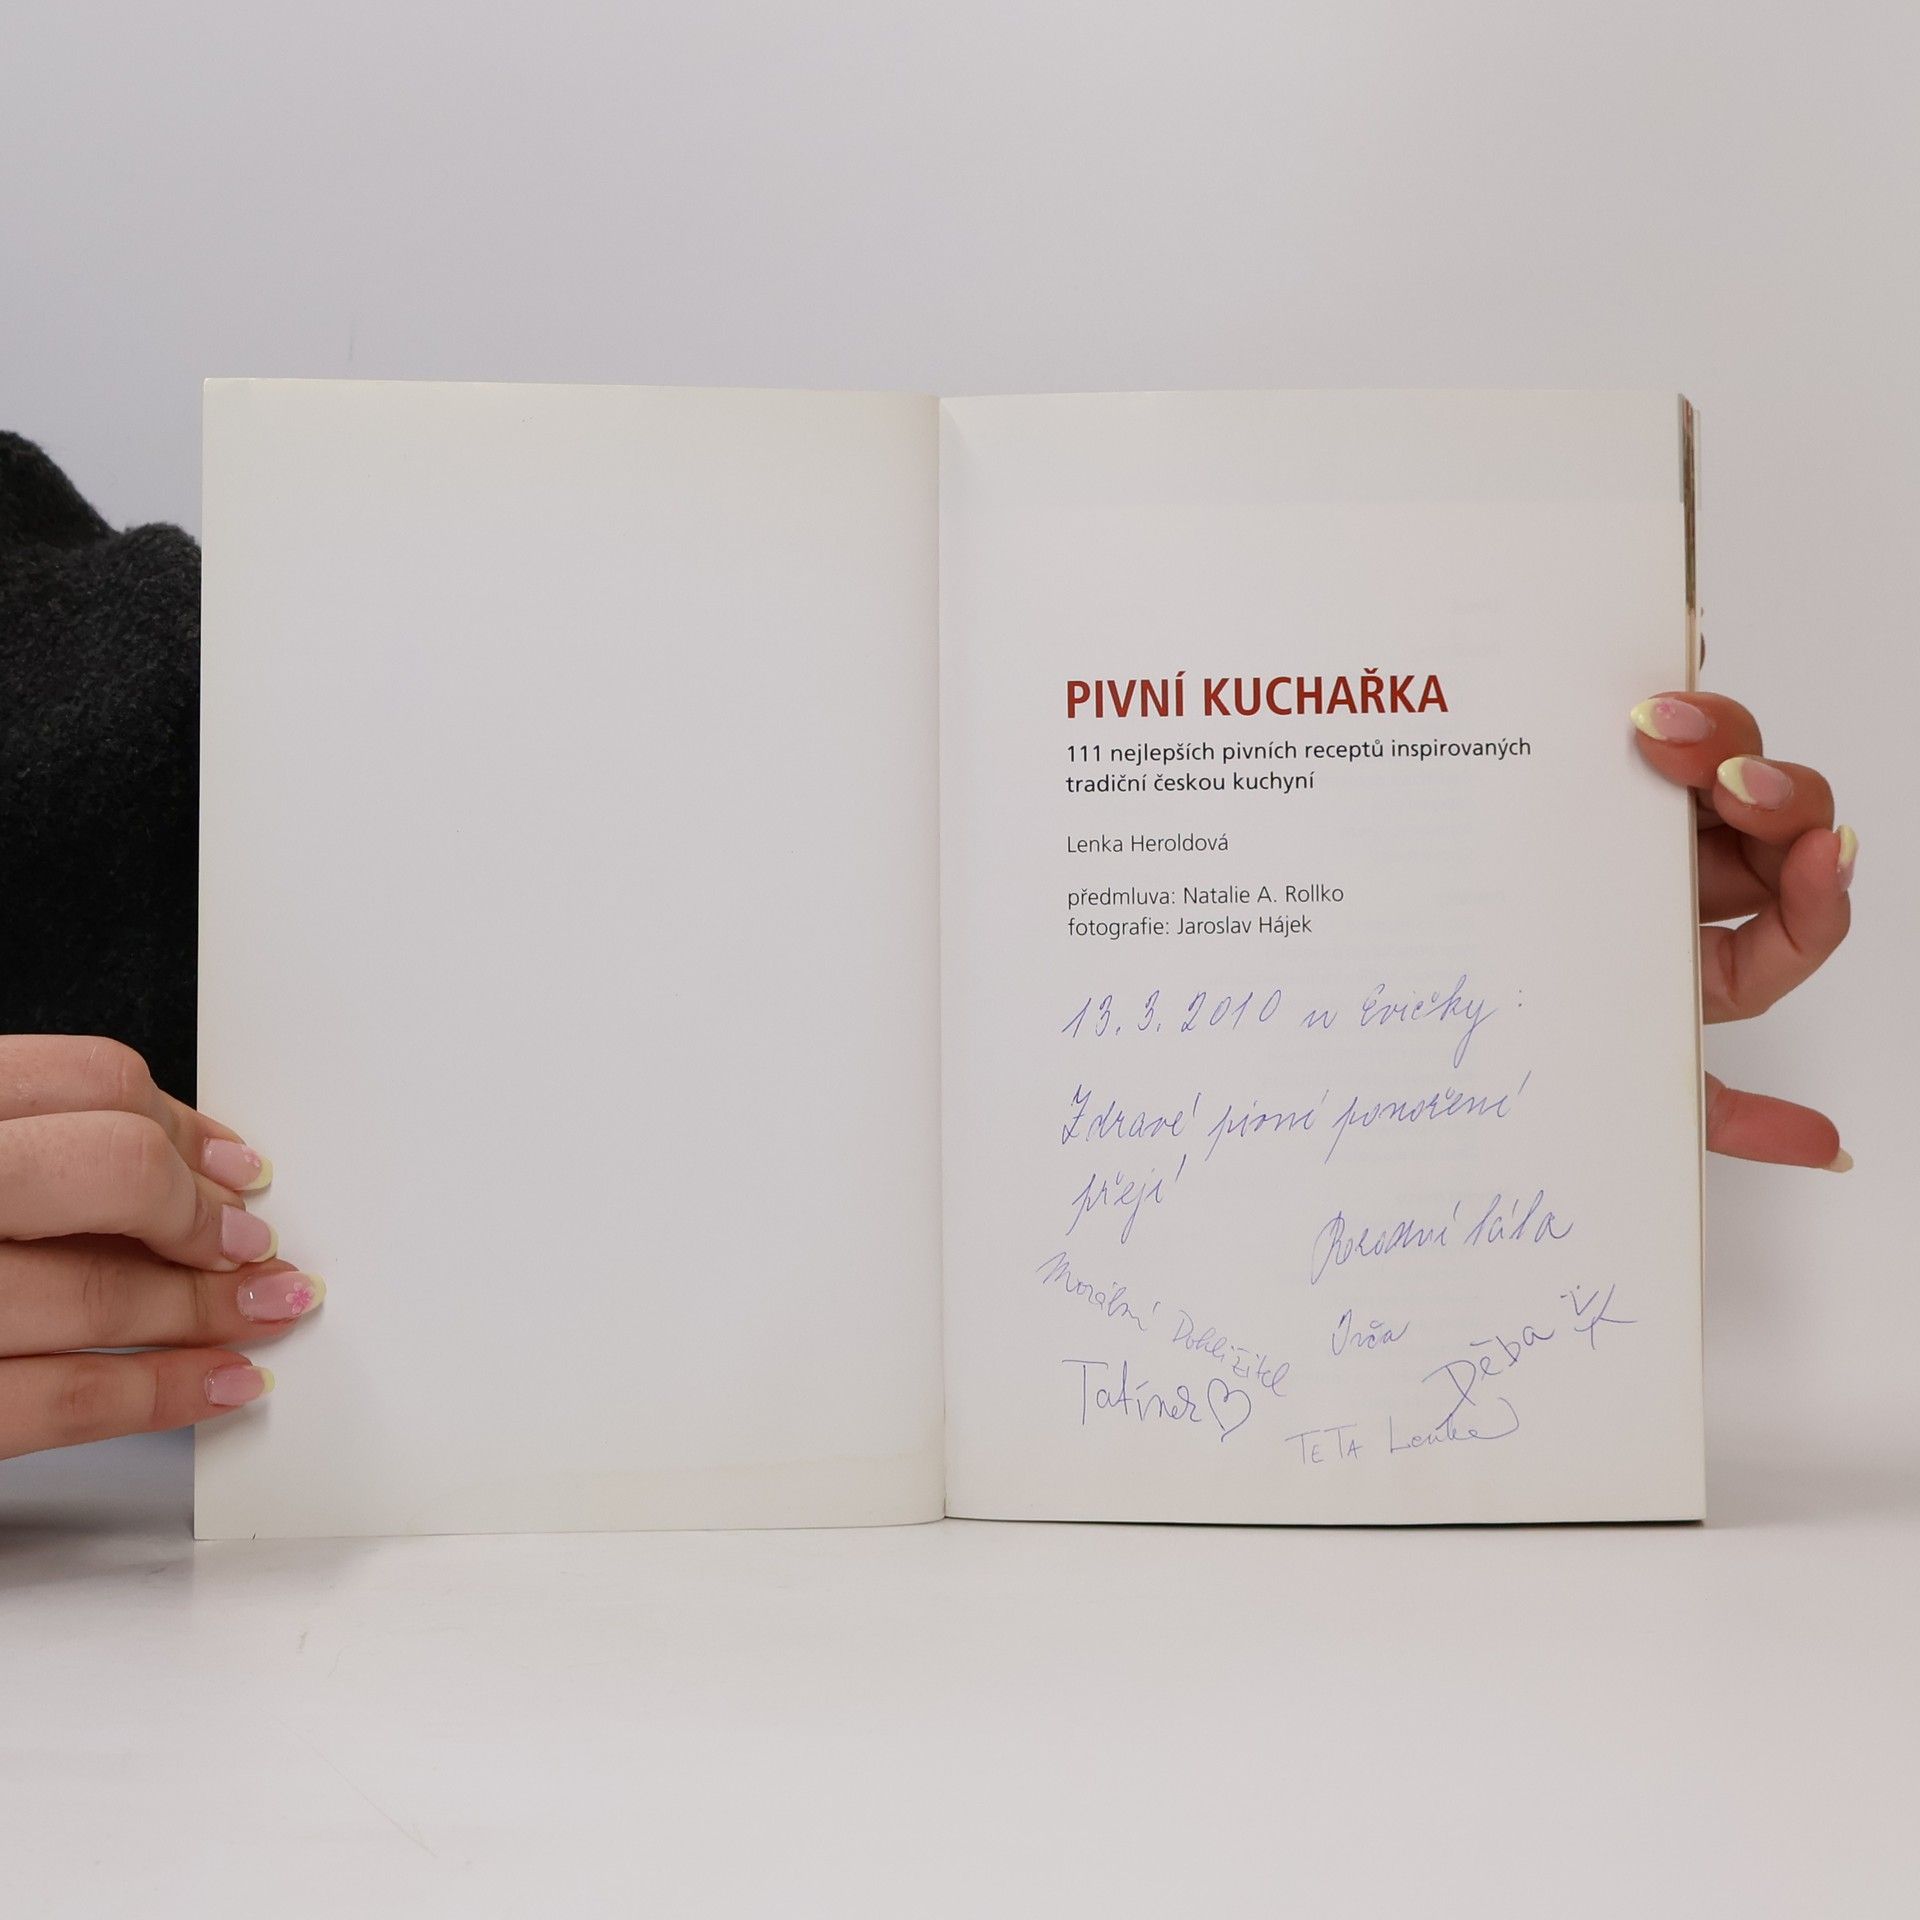 PIVNÍ KUCHAŘKA
111 nejlepších pivních receptů inspirovaných
tradiční českou kuchyní
Lenka Heroldová
předmluva: Natalie A. Rollko
fotografie: Jaroslav Hájek
13. 3. 2010 u Evičky :
Zdravé pivní ponoření
přejí
Morální Dohližitel
Tatínek
Děba
TETA Lenka